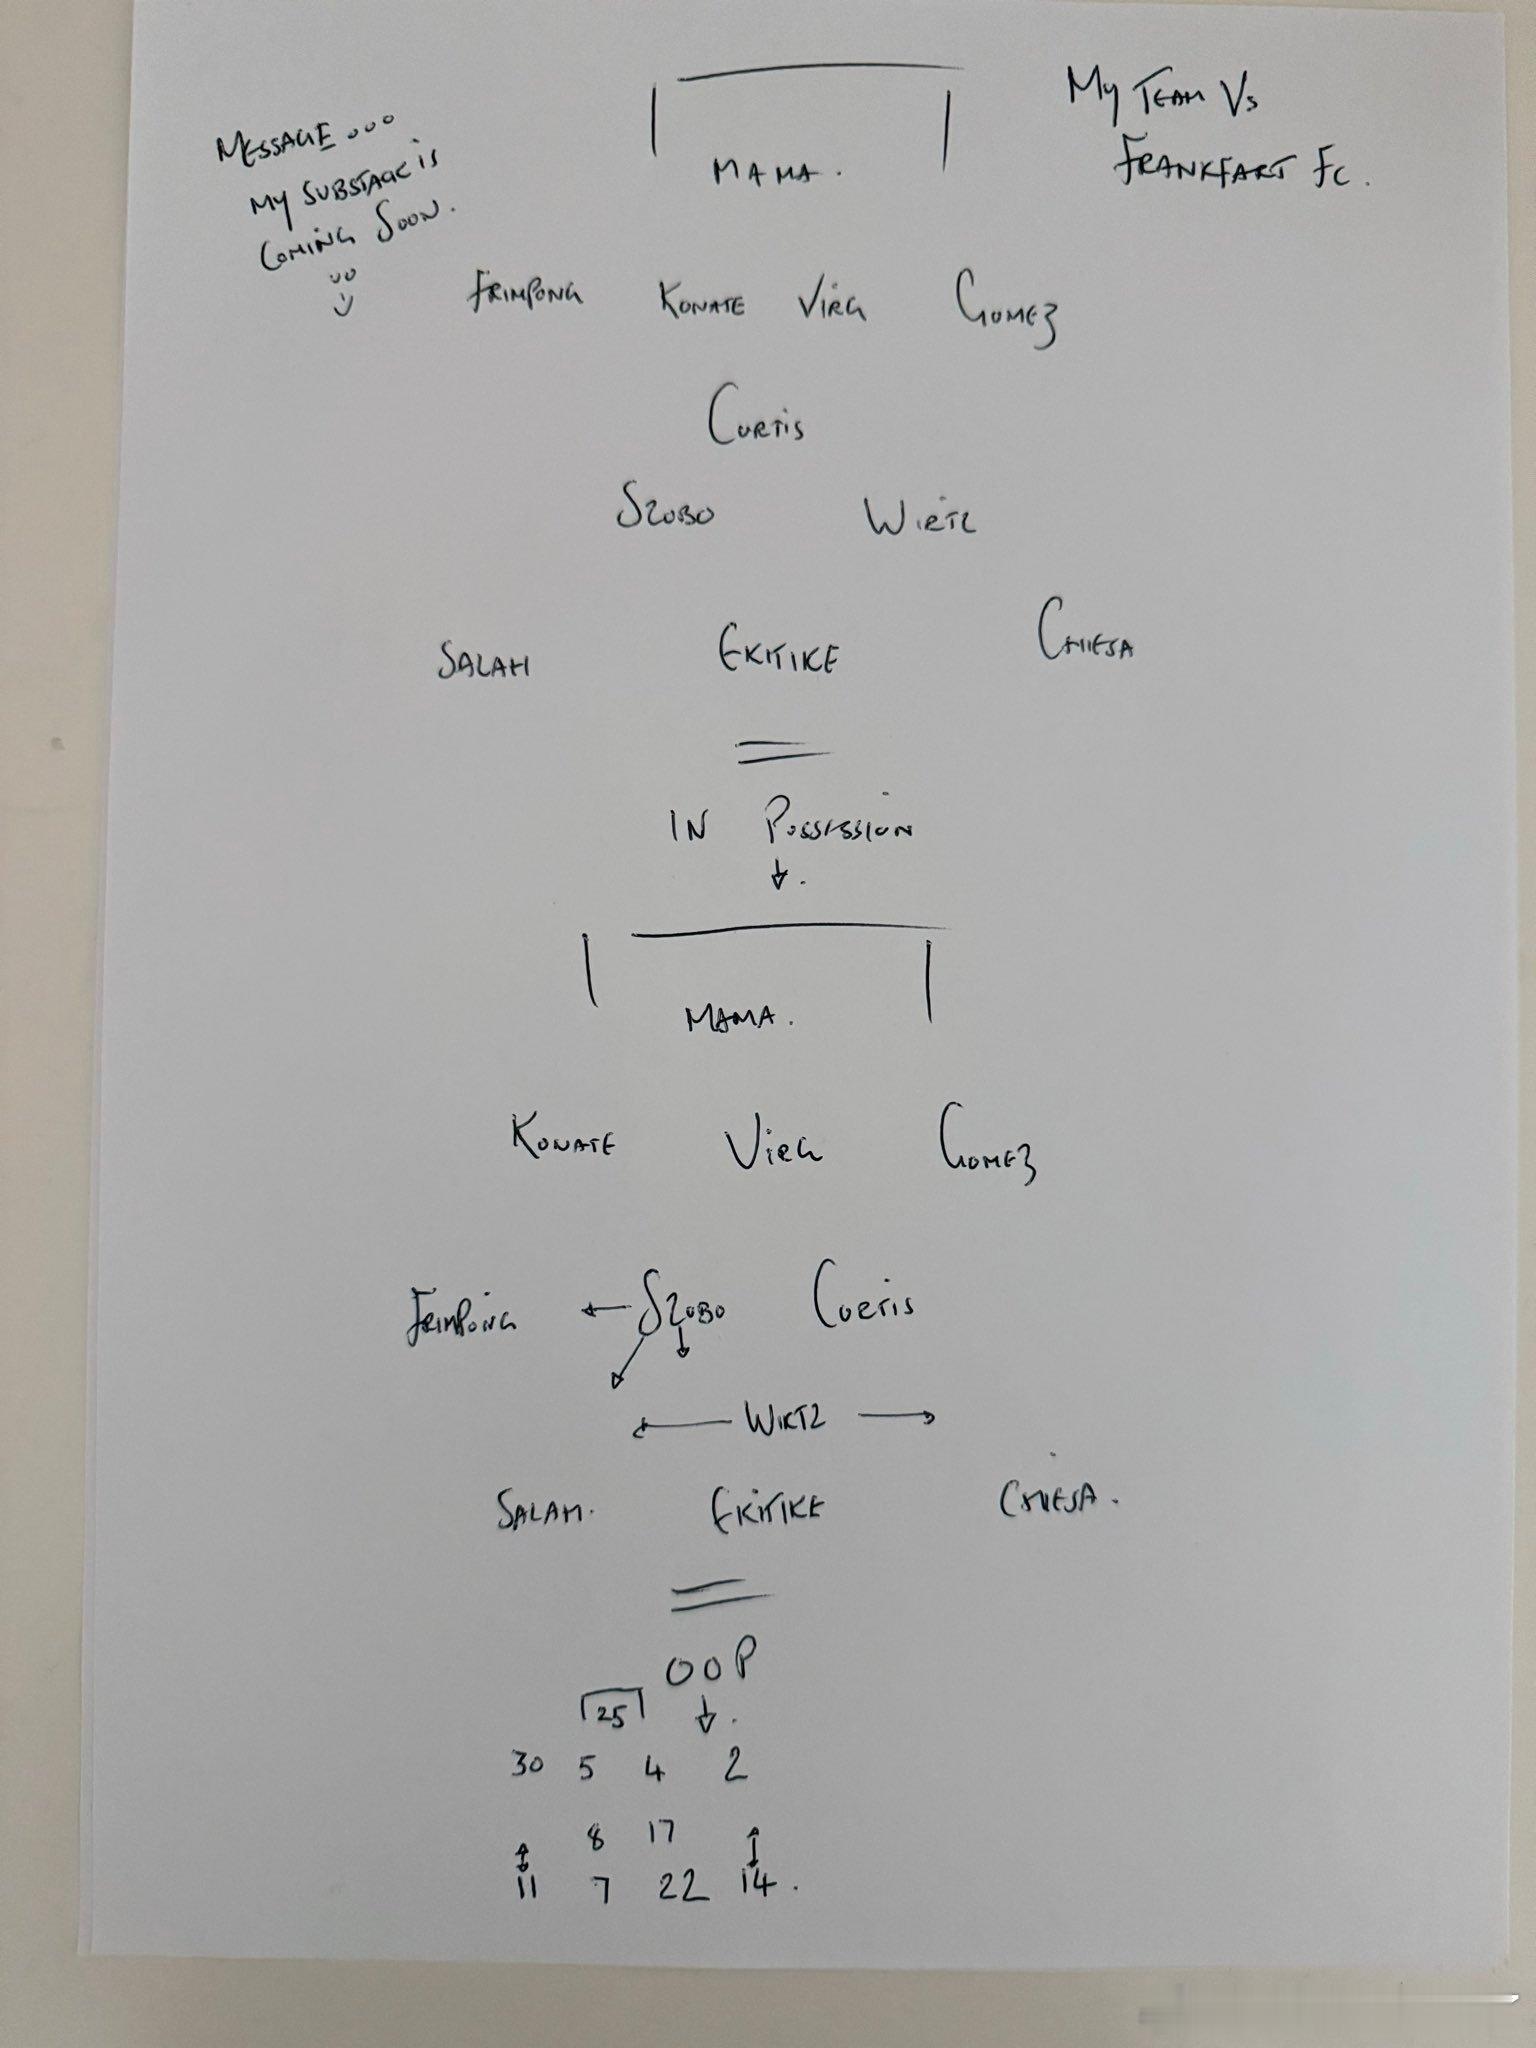 MESSAGE ...
MY SUBSTACK IS
COMING SOON.
MY TEAM Vs
FRANKFART FC.
MAMA.
FRIMPONG KONATE VIRG GOMEZ
CURTIS
SZOBO WIRTZ
SALAH EKITIKE CHIESA
IN POSSESSION
MAMA.
KONATE VIRG GOMEZ
FRIMPONG SZOBO CURTIS
WIRTZ
SALAH. EKITIKE CHIESA.
OOP
25
30 5 4 2
8 17
11 7 22 14.